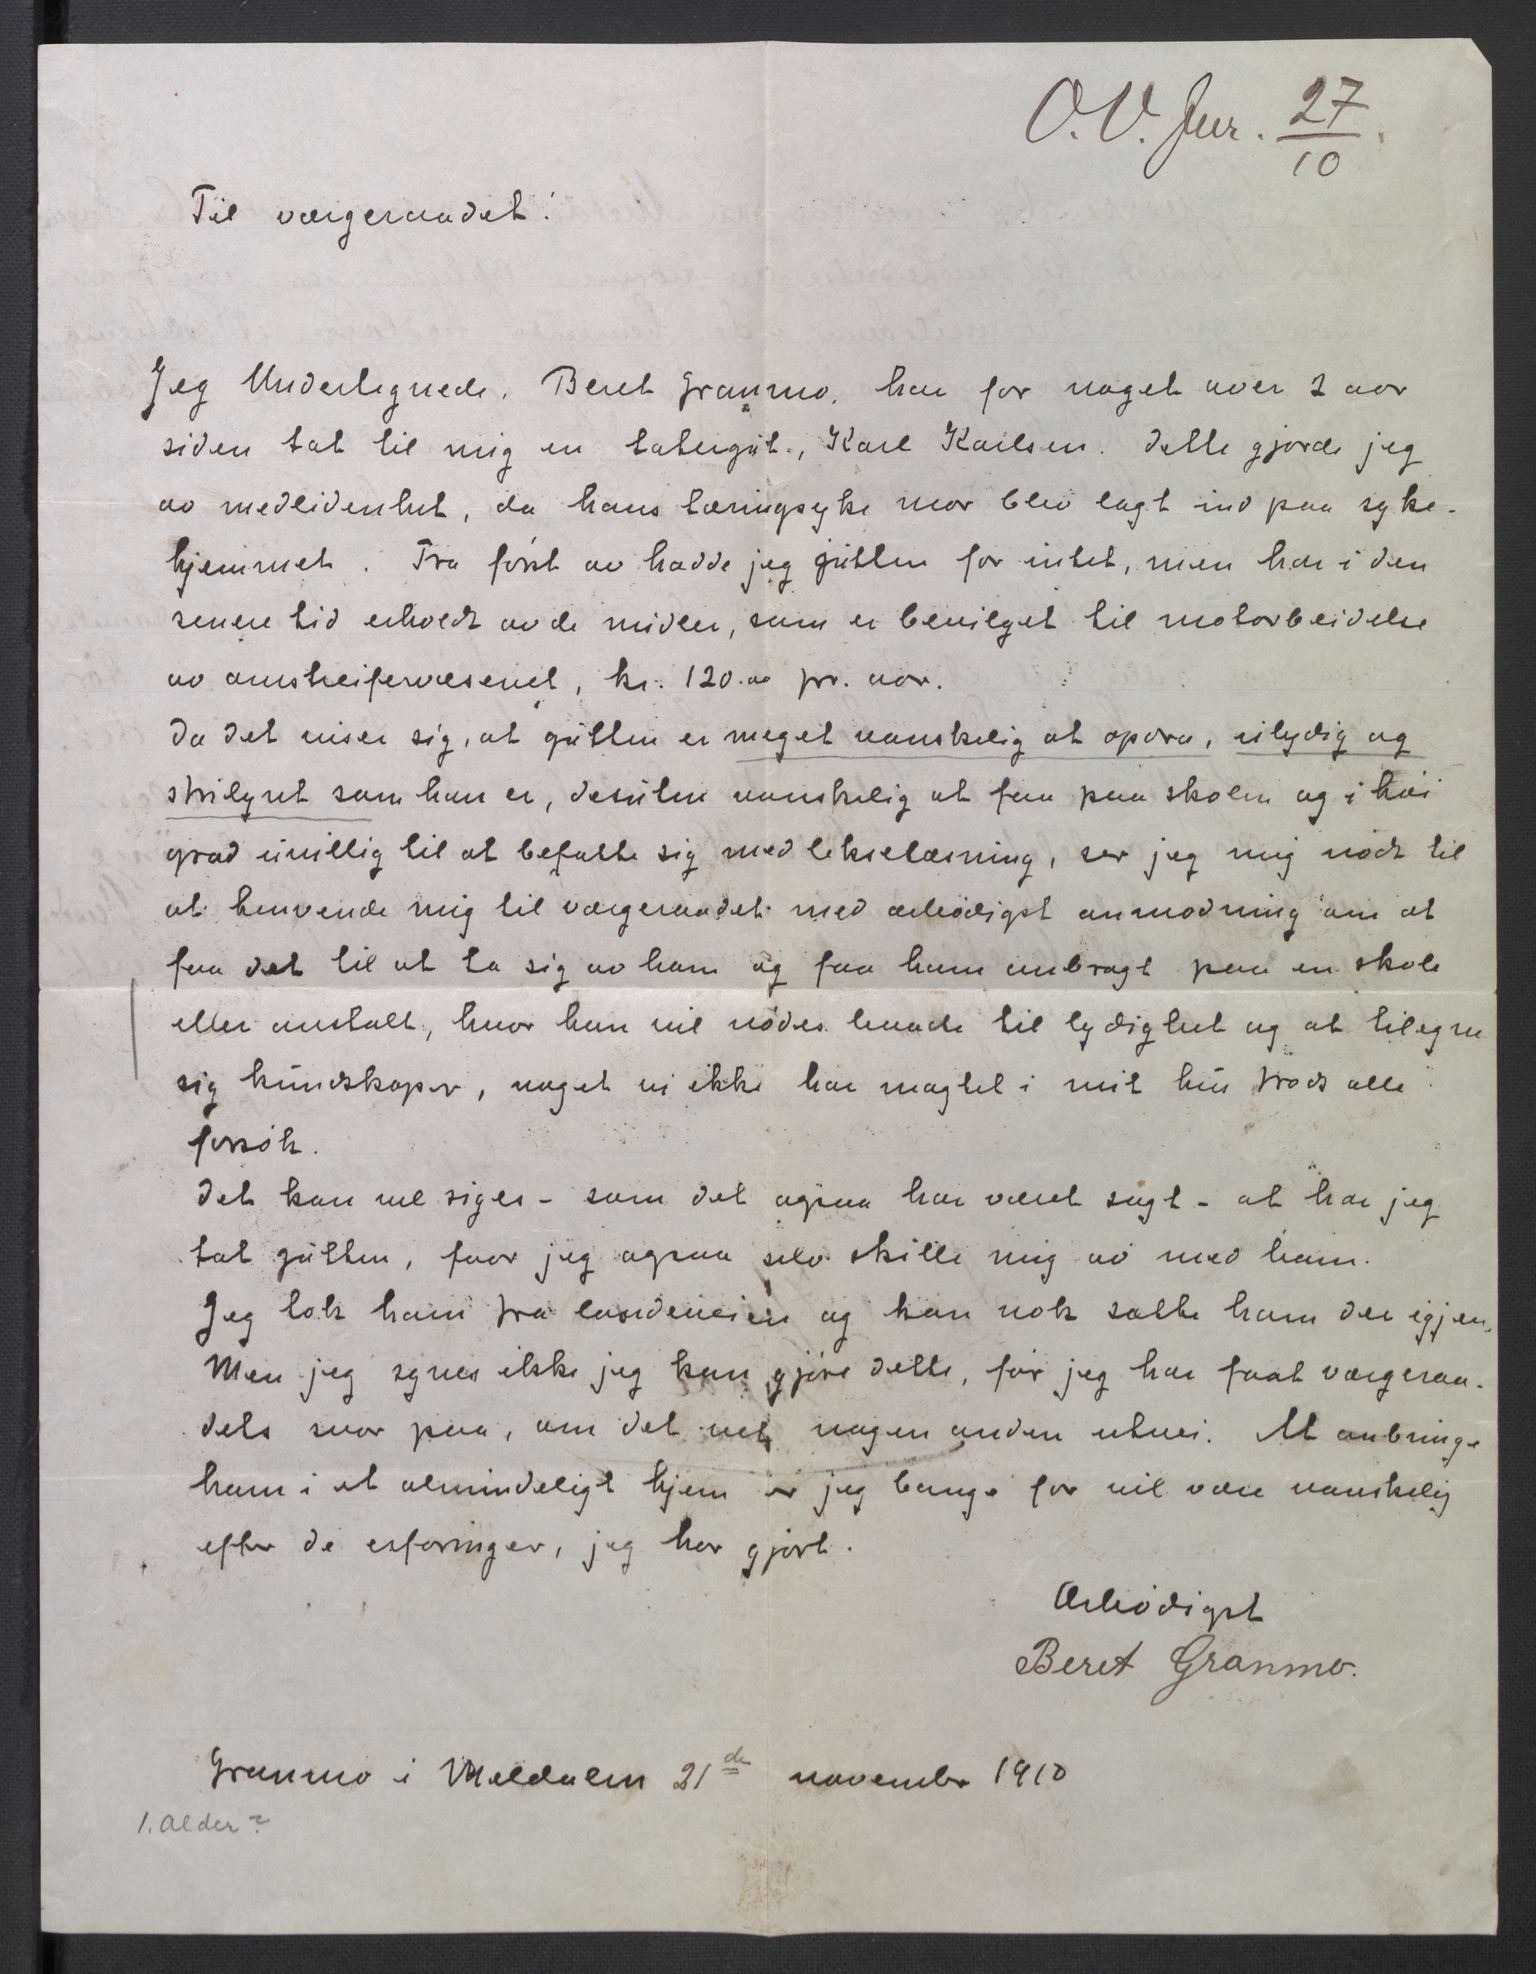 O. V. Jur. 27/10.
Til værgeraadet!
Jeg Undertegnede, Beret Granmo, har for noget over 2 aar
siden tat til mig en tatergut., Karl Karlsen. Dette gjorde jeg
av medlidenhet, da hans tæringsyke mor blev lagt ind paa syke-
hjemmet. Fra først av hadde jeg gutten for intet, men har i den
senere tid erholdt av de midler, som er bevilget til motarbeidelse
av omstreifervæsenet, kr. 120.00 pr. aar.
Da det viser sig, at gutten er meget vanskelig at opdra, ulydig og
strilynt som han er, desuten vanskelig at faa paa skolen og i høi
grad uvillig til at befatte sig med lekselæsning, ser jeg mig nødt til
at henvende mig til værgeraadet med ærbødigst anmodning om at
faa det til at ta sig av ham og faa ham anbragt paa en skole
eller anstalt, hvor han vil nødes baade til lydighet og at tilegne
sig kundskaper, noget vi ikke har magtet i mit hus trods alle
forsøk.
Det kan vel siges - som det ogsaa har været sagt - at har jeg
tat gutten, faar jeg ogsaa selv skille mig av med ham.
Jeg tok ham fra landeveien og kan nok sætte ham der igjen.
Men jeg synes ikke jeg kan gjøre dette, før jeg har faat værgeraa-
dets svar paa, om det vet nogen anden utvei. At anbringe
ham i et almindeligt hjem er jeg bange for vil være vanskelig
efter de erfaringer, jeg har gjort.
Ærbødigst
Beret Granmo.
Granmo i Meldalen 21de november 1910
1. Alder?